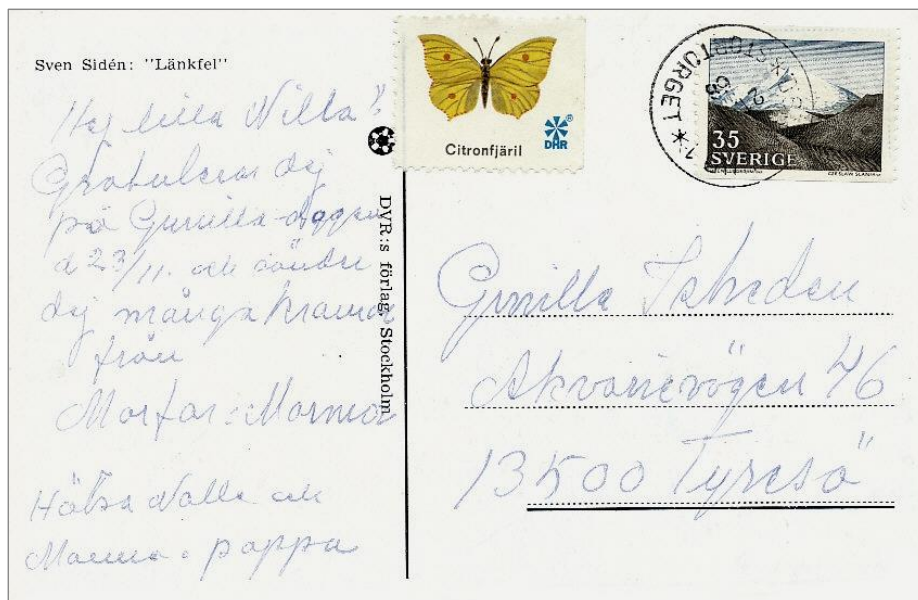 Sven Sidén: "Länkfel"
Hej lilla Nilla!
Gratulerar dej
på Gunilla-dagen
d 23/11. och sänder
dej många kramar
från
Morfar o Mormor
Hälsa Nalle och
Mamma o pappa
DVR:s förlag, Stockholm
Citronfjäril
DHR
TORGET
35
SVERIGE
CZESLAW SLANIA SC
Gunilla
Akvarievägen 46
13500 Tyresö